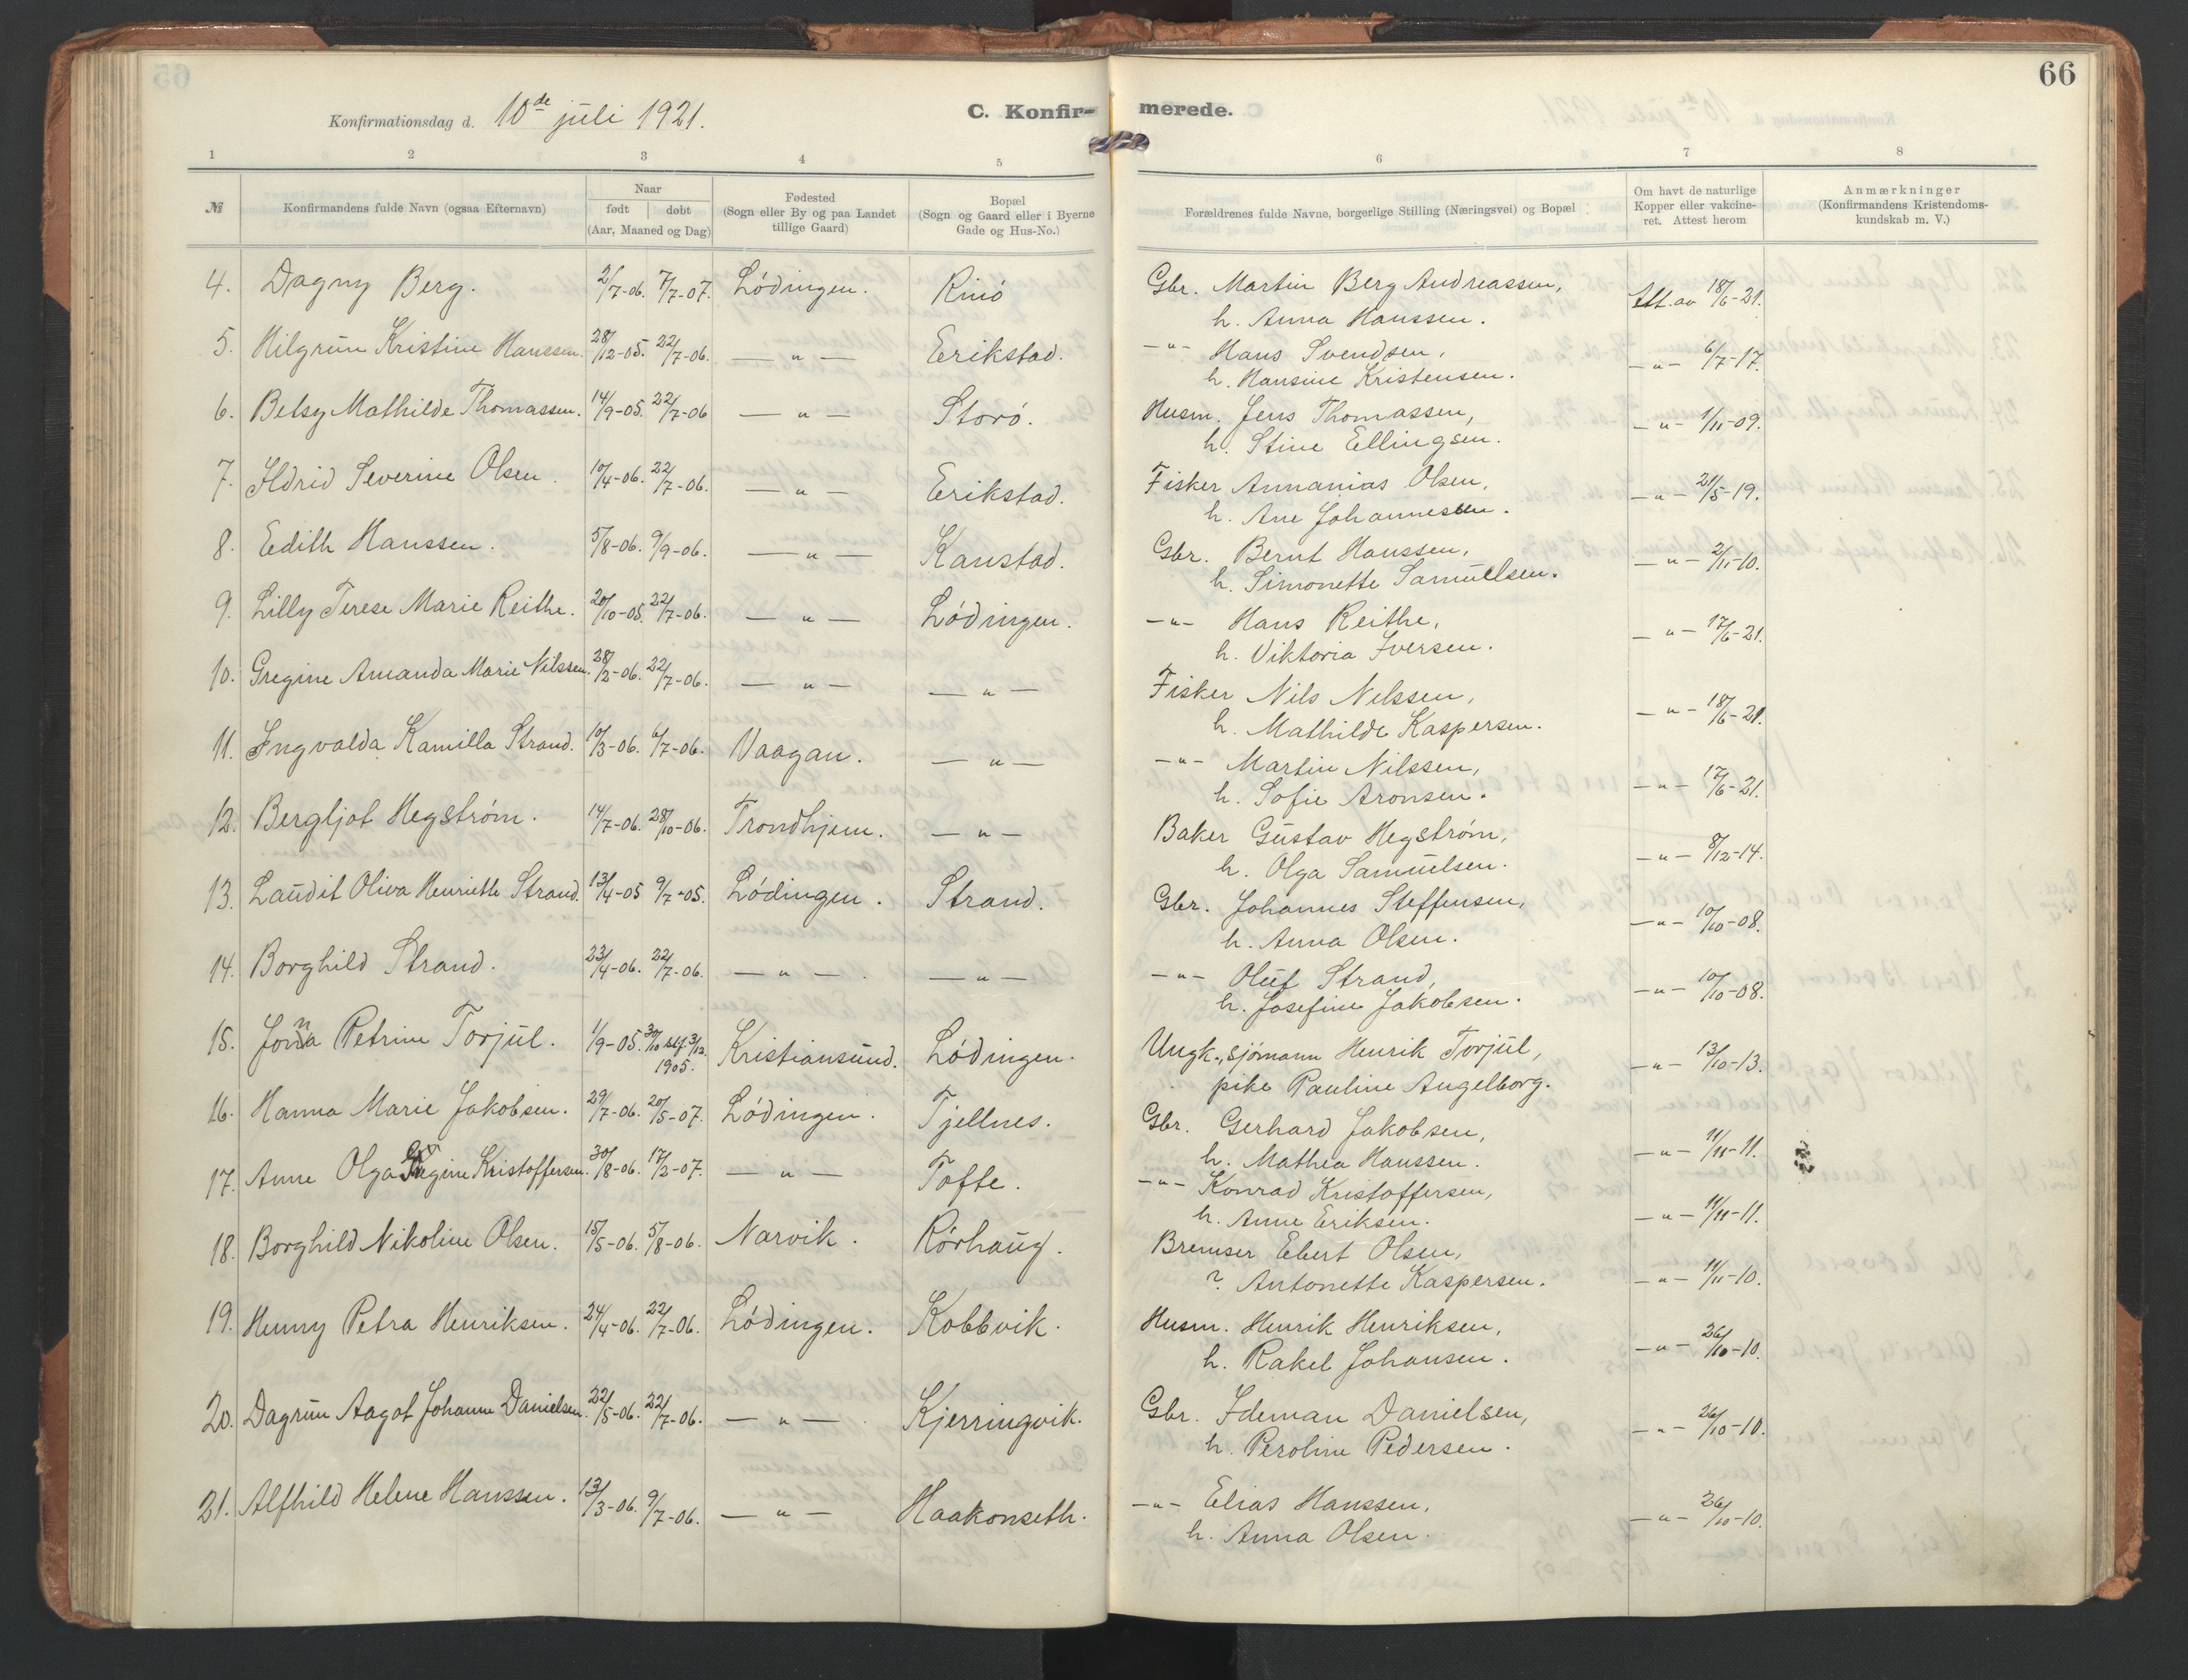 66
Konfirmationsdag d. 10de juli 1921.
C. Konfir-
merede.
1 2 3 4 5 6 7 8
№ Konfirmandens fulde Navn (ogsaa Efternavn)
Naar
født døbt
(Aar, Maaned og Dag)
Fødested
(Sogn eller By og paa Landet
tillige Gaard)
Bopæl
(Sogn og Gaard eller i Byerne
Gade og Hus-No.)
Forældrenes fulde Navne, borgerlige Stilling (Næringsvei) og Bopæl
Om havt de naturlige
Kopper eller vakcine-
ret. Attest herom
Anmærkninger
(Konfirmandens Kristendoms-
kundskab m. V.)
4. Dagny Berg. 2/7-06. 7/7-07. Lødingen. Rinø Gbr. Martin Berg Andreassen, Att. av 18/6-21.
h. Anna Hanssen.
5. Hilgrun Kristine Hanssen. 28/12-05. 22/7-06. — " — Erikstad. -"- Hans Svendsen, — " — 6/7-17.
h. Hansine Kristensen.
6. Betsy Mathilde Thomassen. 14/9-05. 22/7-06 — " — Storø. Husm. Jens Thomassen, — " — 1/11-09.
h. Stine Ellingsen.
7. Ildrid Severine Olsen. 10/4-06. 22/7-06. — " — Erikstad. Fisker Annanias Olsen, — " — 21/5-19.
h. Ane Johannessen.
8. Eedith Hanssen. 5/8-06. 9/9-06. — " — Kanstad. Gbr. Bernt Hanssen, — " — 2/11-10.
h. Simonette Samuelsen.
9. Lilly Terese Marie Reithe. 20/10-05. 22/7-06. — " — Lødingen. -"- Hans Reithe, — " — 17/6-21.
h. Viktoria Iversen.
10. Gregine Amanda Marie Nilssen. 28/2-06. 22/7-06. — " — — " — Fisker Nils Nilssen, — " — 18/6-21.
h. Mathilde Kaspersen.
11. Ingvalda Kamilla Strand. 10/3-06. 6/7-06. Vaagan. — " — -"- Martin Nilssen, — " — 17/6-21.
h. Sofie Aronsen.
12. Bergljot Hegstrøm. 14/7-06. 28/10-06. Trondhjem. — " — Baker Gustav Hegstrøm, — " — 8/12-14.
h. Olga Samuelsen.
13. Laudit Oliva Henriette Strand. 13/4-05 9/7-05. Lødingen. Strand. Gbr. Johannes Steffensen, — " — 10/10-08.
h. Anna Olsen.
14. Borghild Strand. 23/4-06. 22/7-06. — " — — " — -"- Oluf Strand, — " — 10/10-08.
h. Josefine Jakobsen.
15. Jonna Petrine Torjul. 1/9-05. 30/10 3/12. 1905. Kristiansund. Lødingen. Ungk., sjømann Henrik Torjul, — " — 13/10-13.
pike Pauline Angelborg.
16. Hanna Marie Jakobsen. 29/7-06. 20/5-07. Lødingen. Tjellnes. Gbr. Gerhard Jakobsen, — " — 11/11-11.
h. Mathea Hanssen.
17. Anne Olga Kristoffersen. 30/8-06. 17/2-07. — " — Tofte. -"- Konrad Kristoffersen, — " — 11/11-11.
h. Anne Eriksen.
18. Borghild Nikoline Olsen. 15/5-06. 5/8-06. Narvik. Rørhaug. Bremser Ebert Olsen, — " — 11/11-10.
? Antonette Kaspersen.
19. Henny Petra Henriksen. 24/4-06. 22/7-06. Lødingen. Kobbvik. Husm. Henrik Henriksen, — " — 26/10-10.
h. Rakel Johansen.
20. Dagrun Aagot Johanne Danielsen. 22/5-06. 22/7-06. — " — Kjerringvik. Gbr. Ideman Danielsen, — " — 26/10-10.
h. Peroline Pedersen.
21. Alfhild Helene Hanssen. 13/3-06. 9/7-06. — " — Haakonseth. -"- Elias Hanssen, — " — 26/10-10.
h. Anna Olsen.